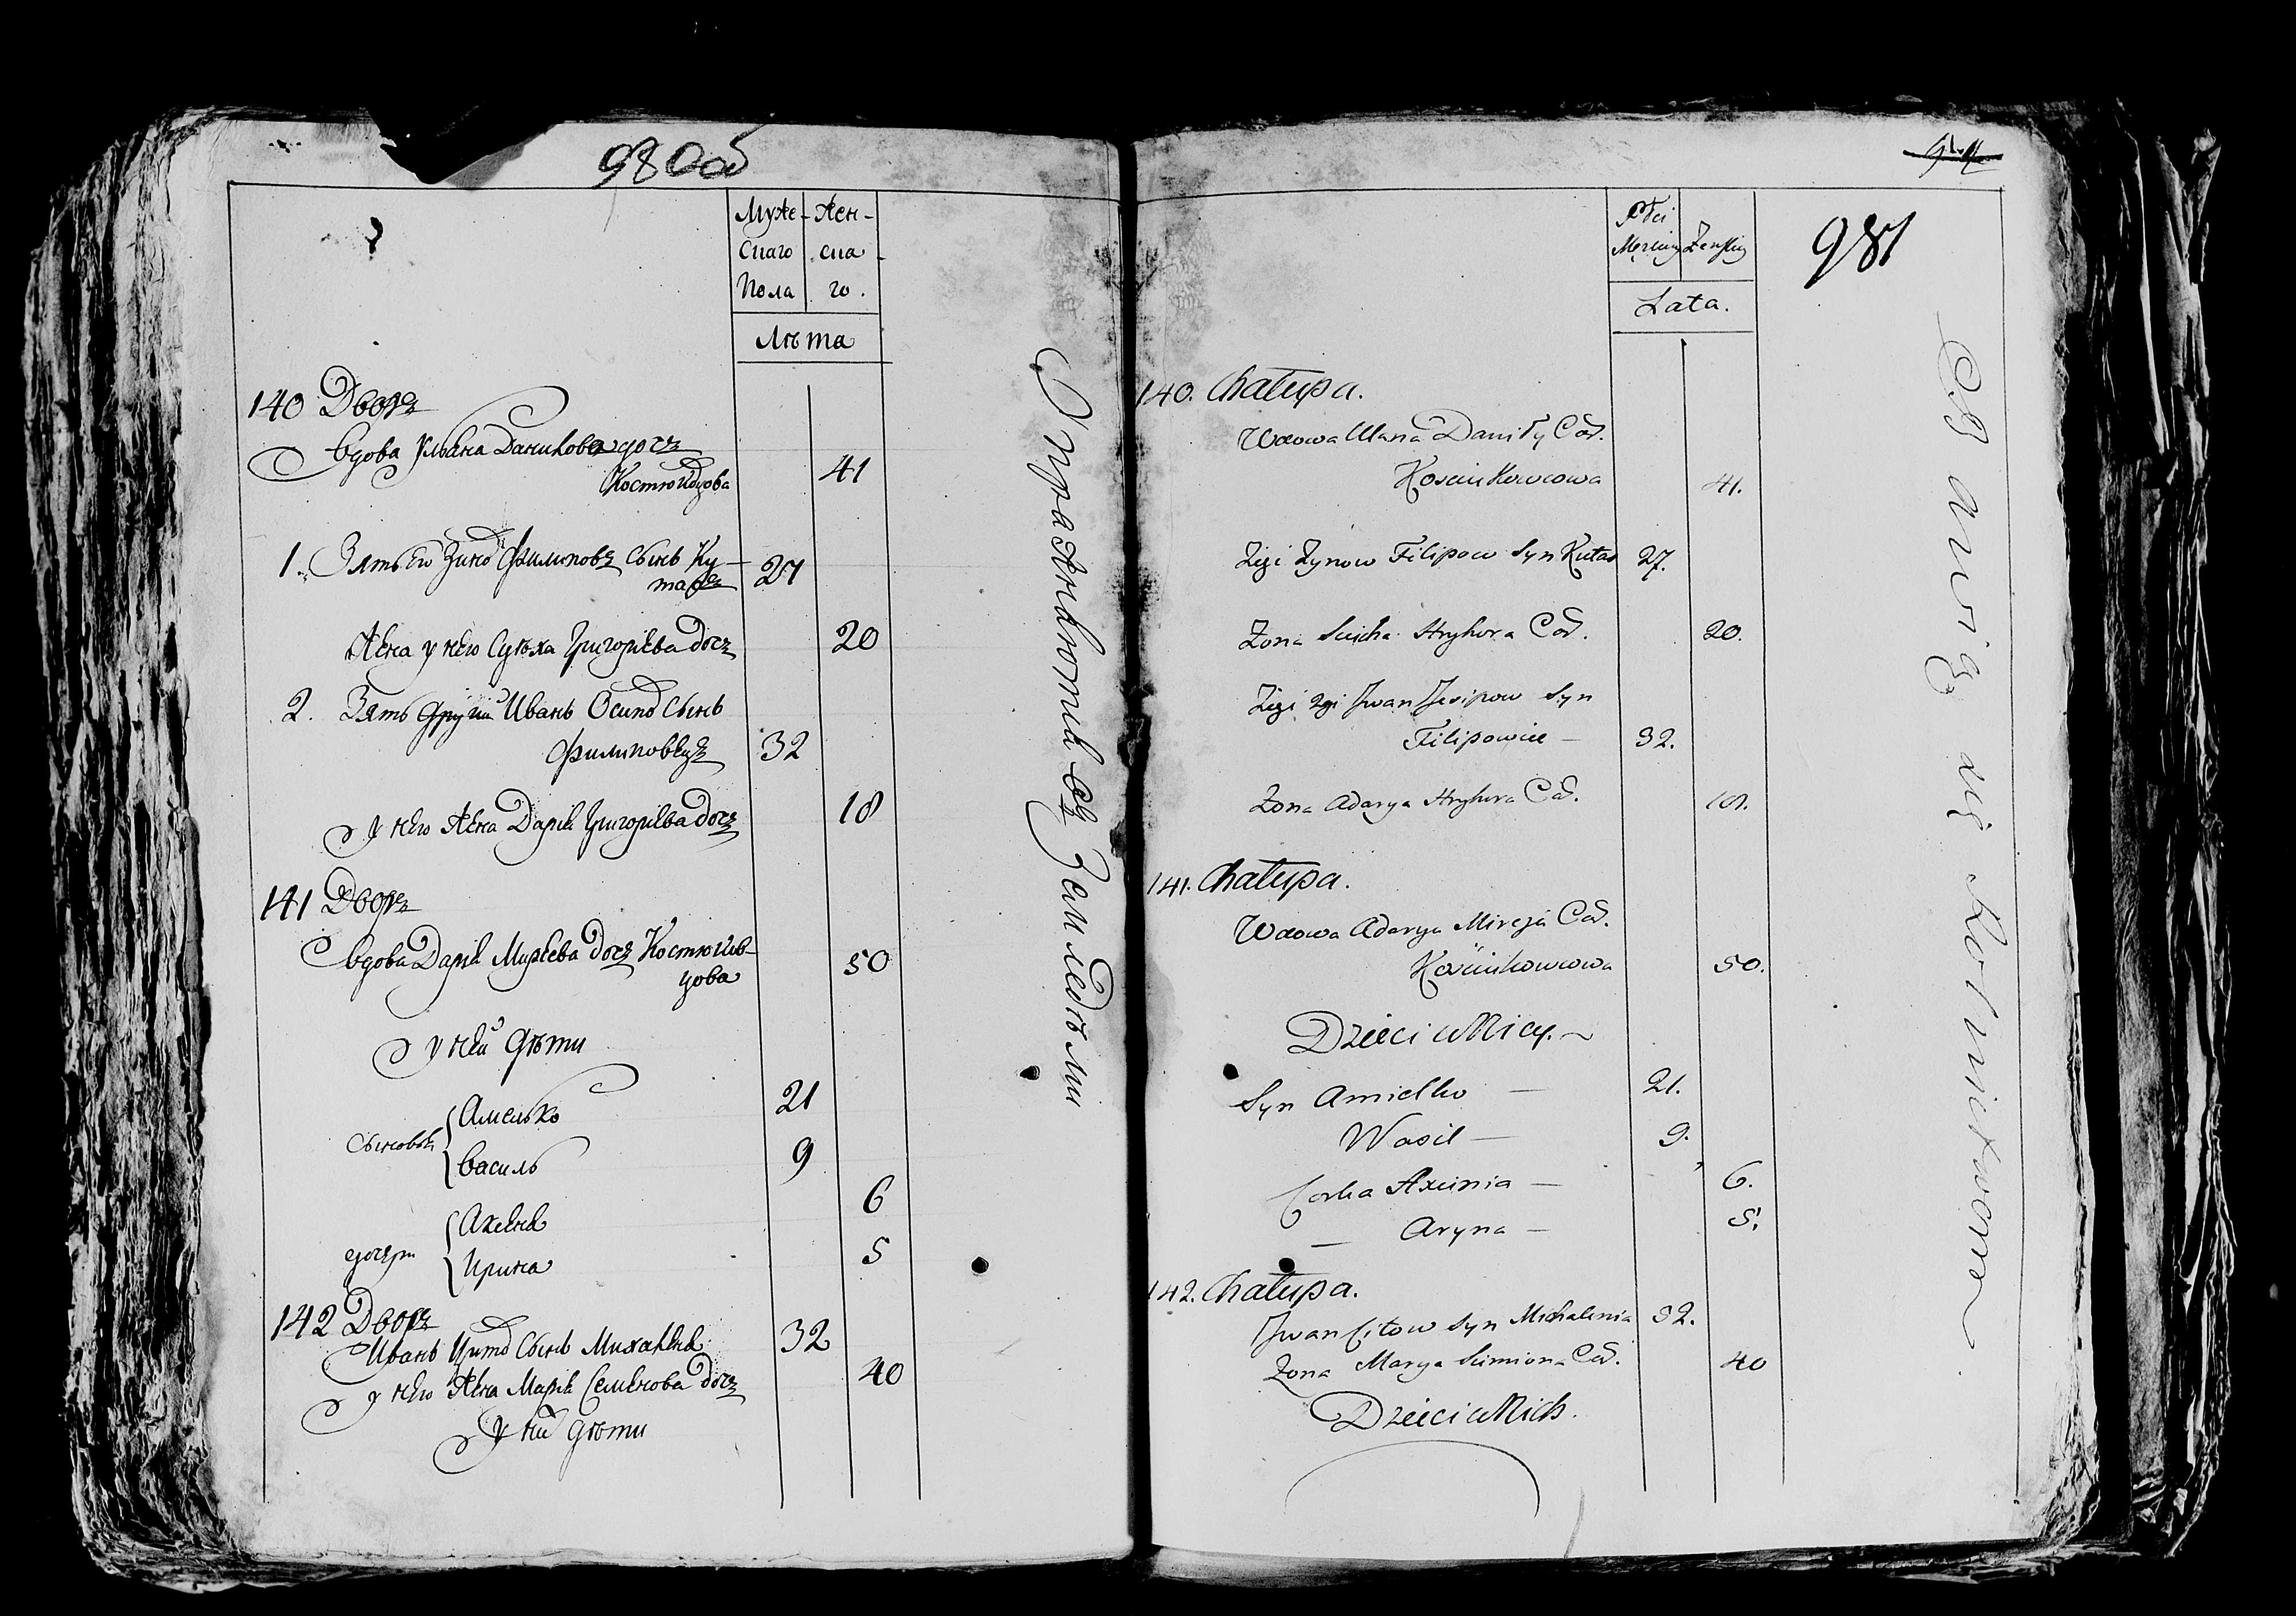 980об
Муже- Жен-
скаго ска-
Пола го.
Лѣта
140 Дворъ
Вдова Ульяна Данилова дочъ
Костюковцова 41
1. Зять его Зинов Филиповъ Сынъ Ку-
таръ 27
Жена у него Сулѣха Григорьева дочъ 20
2. Зять другий Иванъ Осипов Сынъ
Филиповецъ 32
у него Жена Дарья Григорьева дочъ 18
141 Дворъ
Вдова Дарья Мирѣева дочъ Костюков-
цова 50
у ней дѣти
Сыновья Амелько 21
Василь 9
дочери Аксенья 6
Ирина 5
142 Дворъ
Иванъ Титов Сынъ Михаленя 32
у него Жена Марья Семенова дочъ 40
у них дѣти
Упражняются Земледѣлии
981
Płci
Męzkiey Zenskiey
Lata.
140. Chałupa.
Wdowa Ulana Daniły Cor.
Kosciukowcowa 41.
Zięć Zynow Filipow Syn Kutar 27.
Zona Hryhora Cor. 20.
Zięć 2gi Jwan Jesipow Syn
Filipowiec — 32.
Zona Adarya Hryhora Cor. 18.
141. Chałupa.
Wdowa Adarya Mireja Cor.
Kosciukowcowa 50.
Dzieci u Niey. ~
Syn Amielko — 21.
Wasil — 9.
Corka Axinia — 6.
— Aryna — 5.
142. Chałupa.
Jwan Citow Syn Michalenia 32.
Zona Marya Simiona Cor. 40
Dzieci u Nich.
Bawią się Rolnictwem